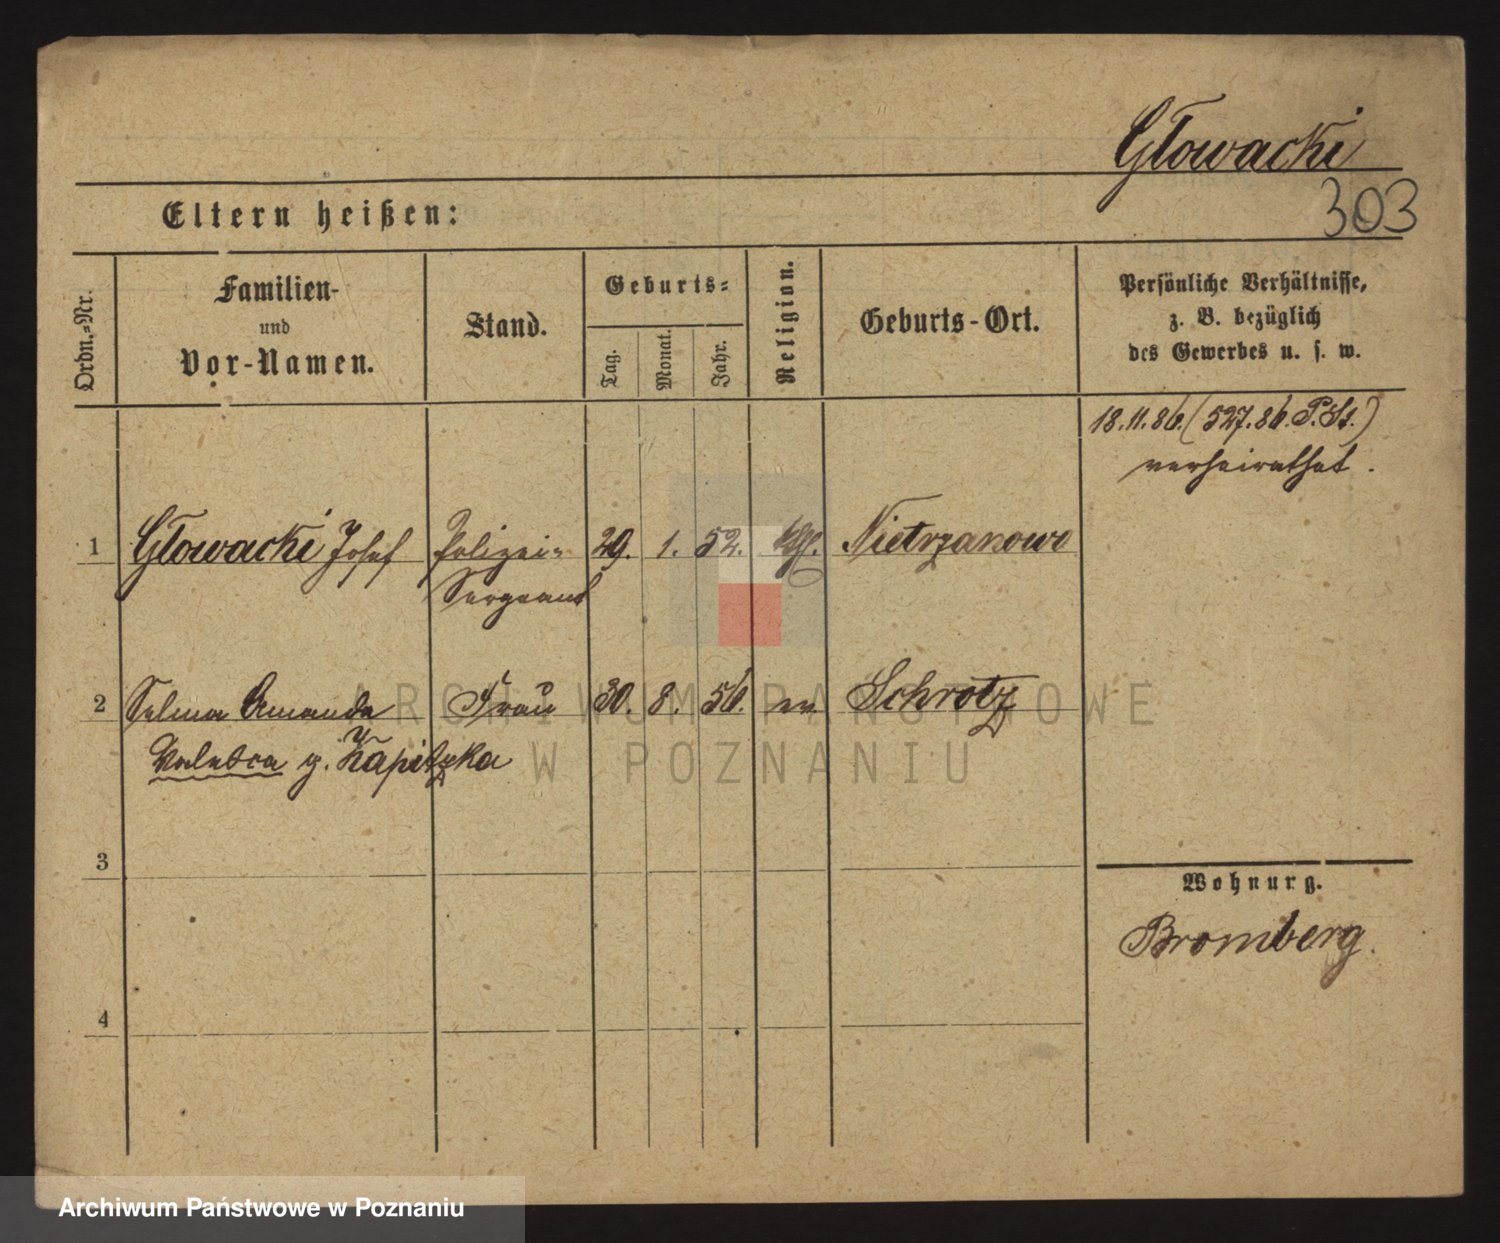 Głowacki
303
Eltern heißen:
Ordn.-Nr.
Familien-
und
Vor-Namen.
Stand.
Geburts-
Tag.
Monat.
Jahr.
Religion.
Geburts-Ort.
Persönliche Verhältnisse,
z. B. bezüglich
des Gewerbes u. s. w.
18.11.86. (527.86. P.St.)
verheirathet.
1 Głowacki Josef Polizei- 29. 1. 52. kth. Nietrzanowo
Sergeant
2 Selma Amanda Frau 30. 8. 56. ev. Schrotz
g. Kapitzka
3
Wohnurg.
Bromberg.
4
ARCHIWUM PAŃSTWOWE
W POZNANIU
Archiwum Państwowe w Poznaniu